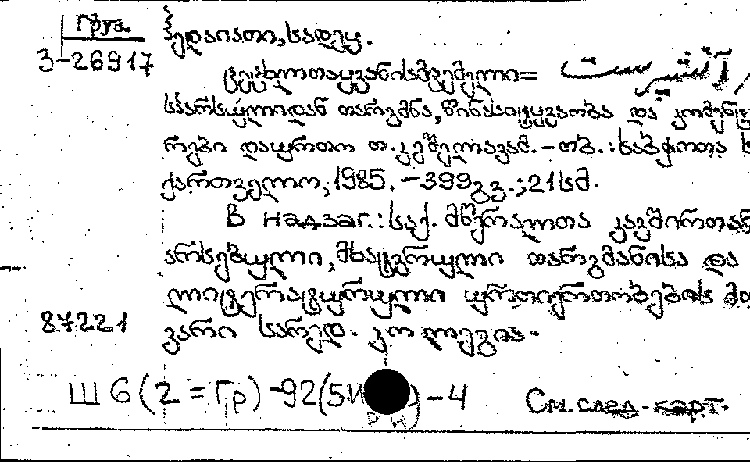 Груз.
3-26917
ჰედაიათი, სადეყ.
ცეცხლთაყვანისმცემელი=
სპარსულიდან თარგმნა, წინასიტყვაობა და კომენტ
რები დაურთო თ. კეშელავამ. - თბ.: საბჭოთა ს
ქართველო, 1985. - 399 გვ.; 21 სმ.
В надзаг.: საქ. მწერალთა კავშირთან
არსებული, მხატვრული თარგმანისა და
ლიტერატურული ურთიერთობების მთ
87221
ვარი სარედ. კოლეგია.
Ш6(2=Гр)-92(5И
)-4
См. след. карт.